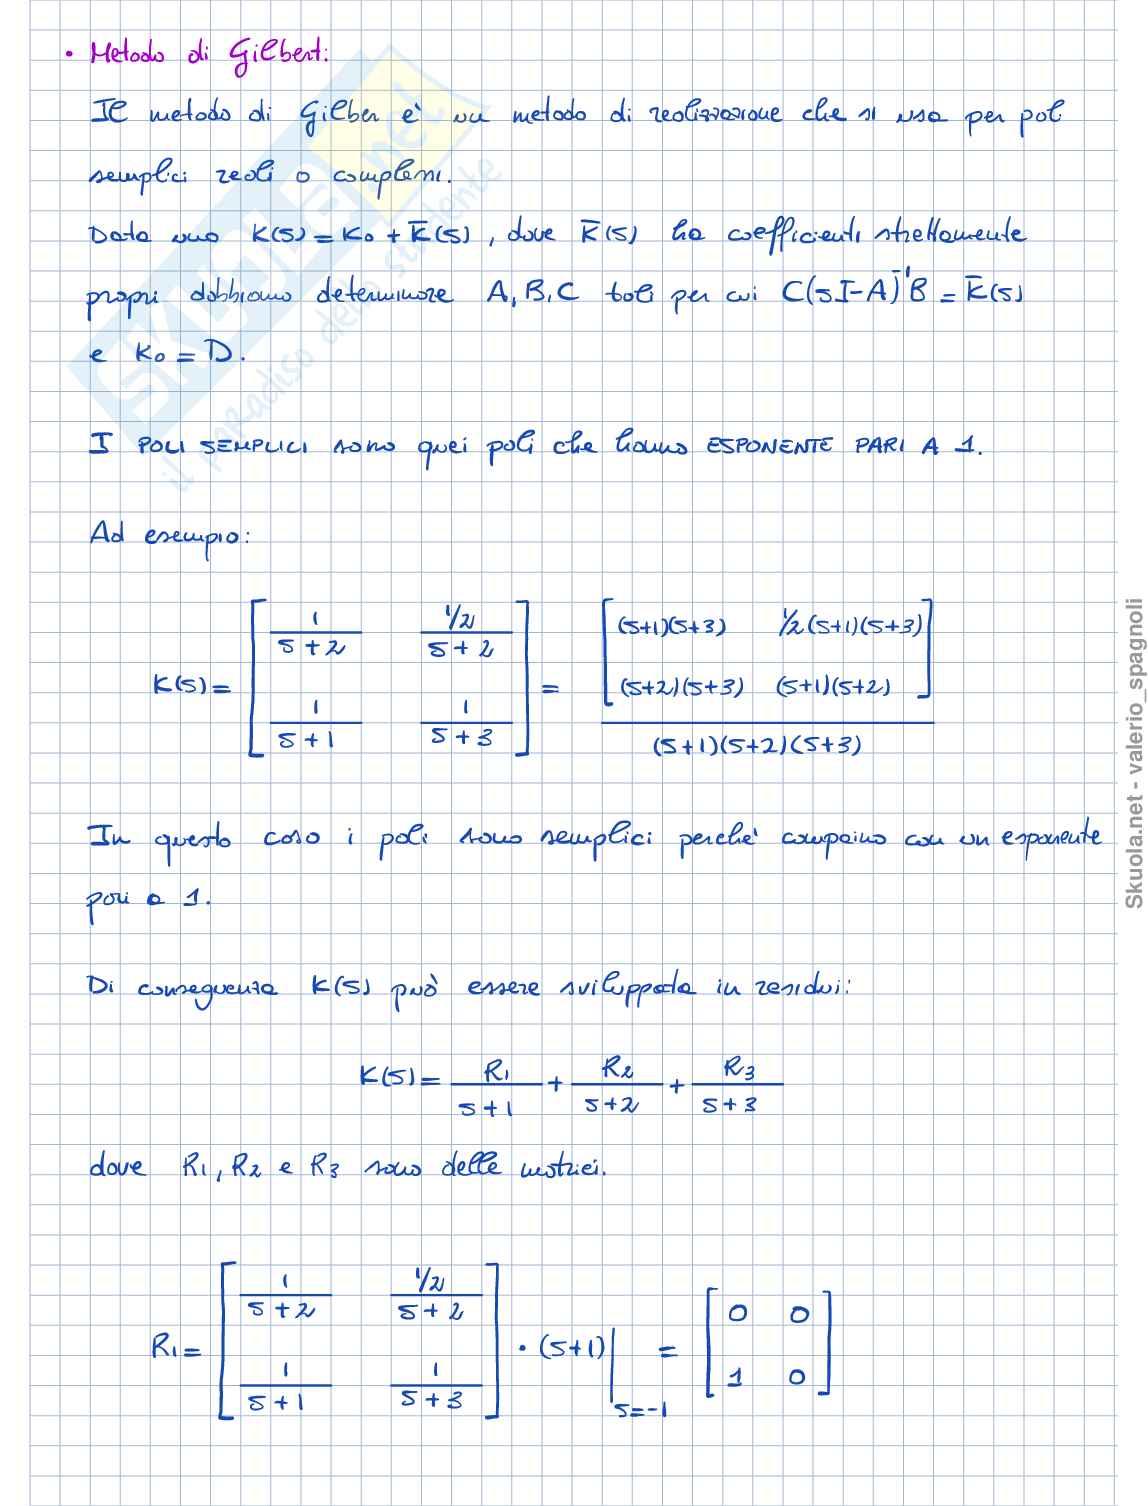 • Metodo di Gilbert:
Il metodo di Gilber è un metodo di realizzazione che si usa per poli
semplici reali o complessi.
Data una K(s) = K₀ + K̅(s), dove K̅(s) ha coefficienti strettamente
propri dobbiamo determinare A, B, C tali per cui C(sI-A)⁻¹B = K̅(s)
e K₀ = D.
I POLI SEMPLICI sono quei poli che hanno ESPONENTE PARI A 1.
Ad esempio:
K(s) = [ 1/(s+2) (1/2)/(s+2) ; 1/(s+1) 1/(s+3) ] = [ (s+1)(s+3) 1/2(s+1)(s+3) ; (s+2)(s+3) (s+1)(s+2) ] / (s+1)(s+2)(s+3)
In questo caso i poli sono semplici perchè compaino con un esponente
pari a 1.
Di conseguenza K(s) può essere sviluppata in residui:
K(s) = R₁/(s+1) + R₂/(s+2) + R₃/(s+3)
dove R₁, R₂ e R₃ sono delle matrici.
R₁ = [ 1/(s+2) (1/2)/(s+2) ; 1/(s+1) 1/(s+3) ] · (s+1)|s=-1 = [ 0 0 ; 1 0 ]
SKUOLA.net
il paradiso dello studente
Skuola.net - valerio_spagnoli